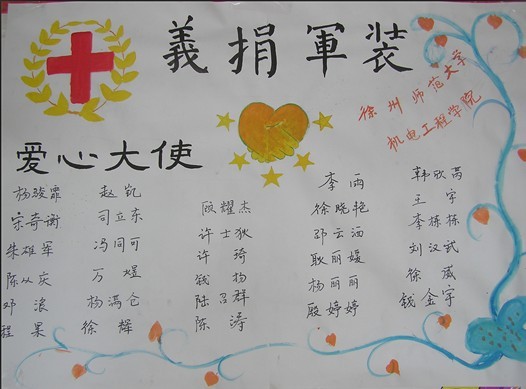 義捐軍裝
徐州师范大学
机电工程学院
爱心大使
杨骏霏 赵凯 殷耀杰 李雨 韩欣高
宗奇衡 司立东 许士狄 徐晓艳 王宇
朱雄军 冯同可 许琦 邵云洒 李栋栋
陈从庆 万煜 钱杨 耿丽媛 刘汉武
邓浪 杨满仓 陆召群 杨丽丽 徐威
程果 徐辉 陈涛 殷婷婷 钱金宇